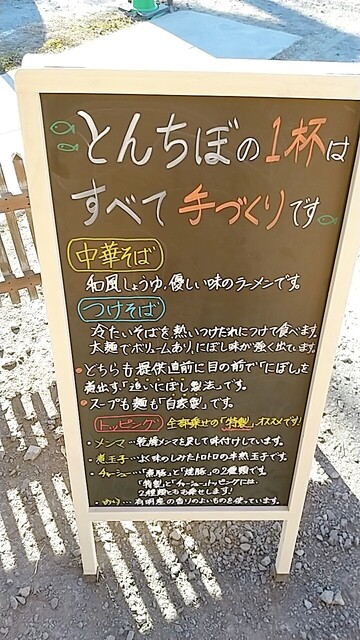 とんちぼの1杯は
すべて手づくりです
中華そば
和風しょうゆ、優しい味のラーメンです。
つけそば
冷たいそばを熱いつけだれにつけて食べます。
太麺でボリュームあり、にぼし味が強く出ています。
どちらも提供直前に目の前で「にぼし」を
煮出す「追いにぼし製法」です。
スープも麺も「自家製」です。
トッピング 全部乗せの「特製」オススメです!
メンマ…乾燥メンマを戻して味付けしています。
煮玉子…よく味のしみたトロトロの半熟玉子です。
チャーシュー…「煮豚」と「焼豚」の2種類です。
「特製」と「チャーシュー」トッピングには、
2種類ともお乗せします!
のり…有明産の香りのよいものを使っています。